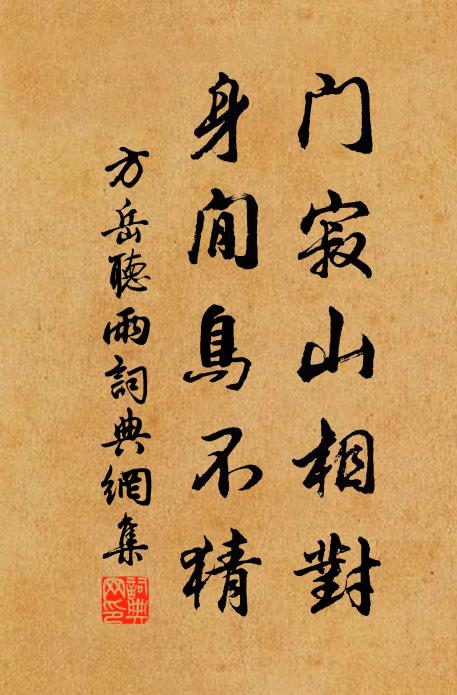 门寂山相對
身閒鳥不猜
方岳聽雨詞典網集
詞典网印